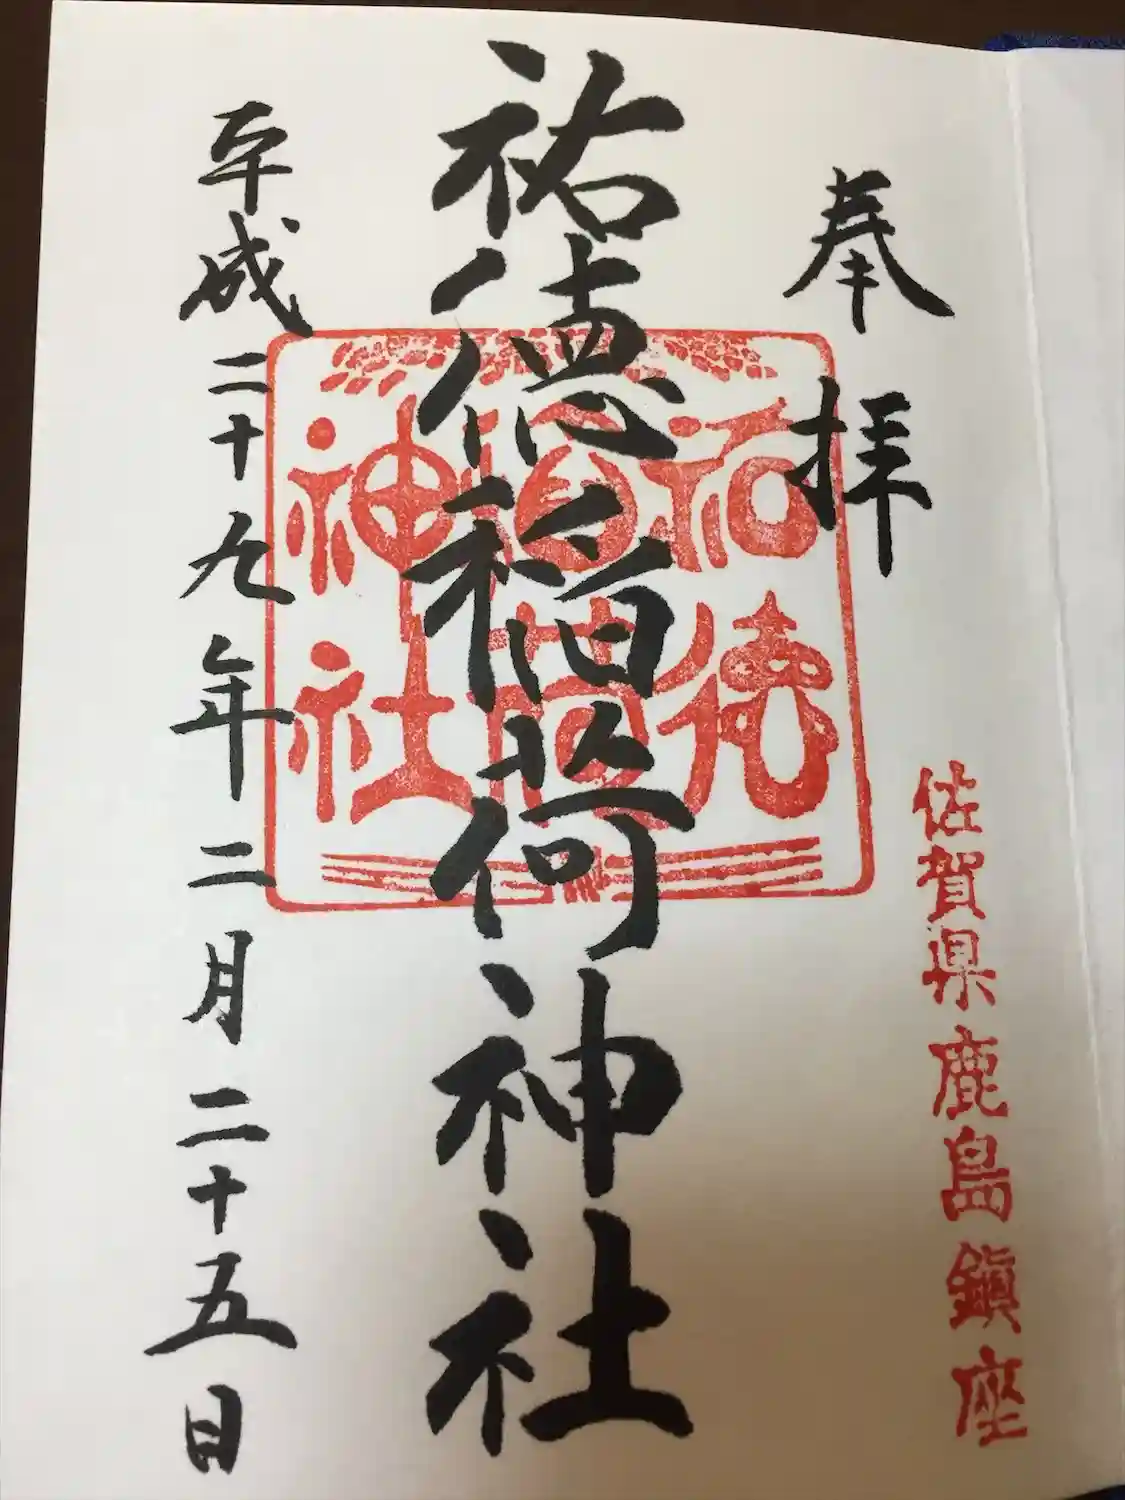 奉拝
佐賀県鹿島鎮座
祐徳稲荷神社
祐徳
稲荷
神社
平成二十九年二月二十五日